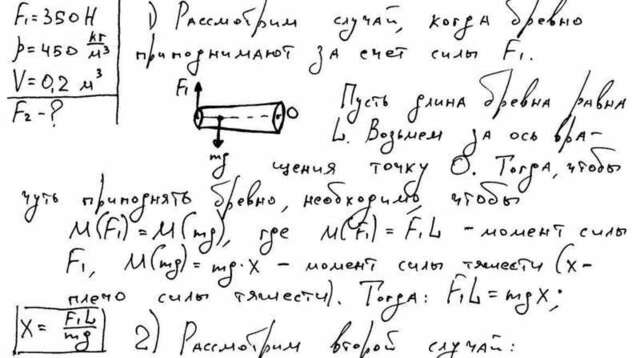 F₁=350Н
ρ=450 кг/м³
V=0,2 м³
F₂-?
1) Рассмотрим случай, когда бревно
приподнимают за счет силы F₁.
F₁
O
mg
Пусть длина бревна равна
L. Возьмем за ось вра-
щения точку O. Тогда, чтобы
чуть приподнять бревно, необходимо, чтобы
M(F₁)=M(mg), где M(F₁)=F₁L - момент силы
F₁, M(mg)=mg·x - момент силы тяжести (x-
плечо силы тяжести). Тогда: F₁L=mgx;
x=F₁L/mg 2) Рассмотрим второй случай: